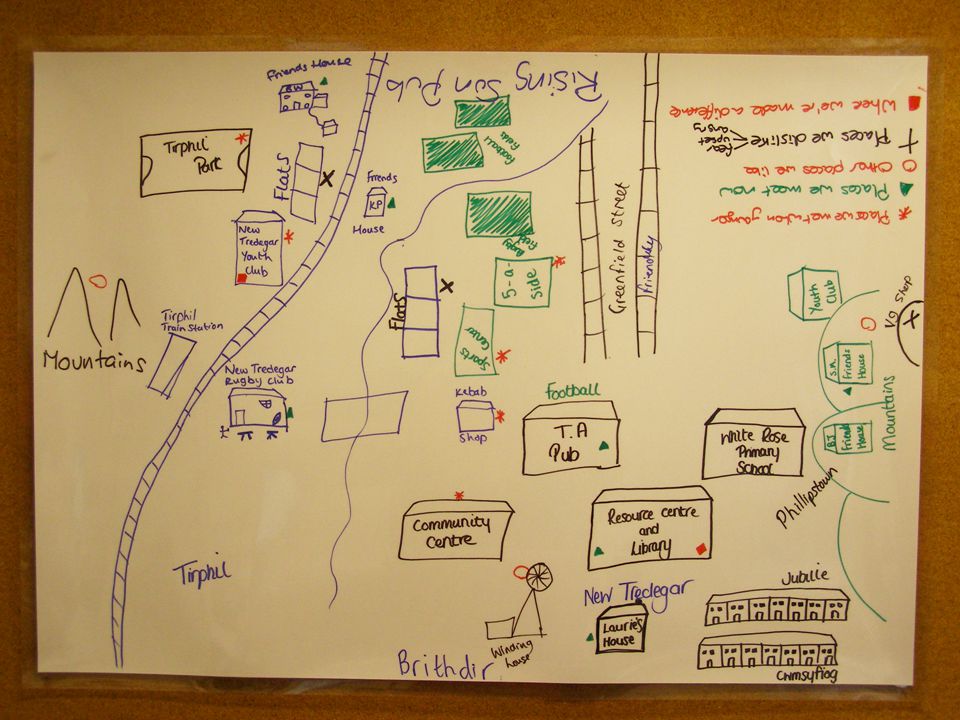 Friends House
BW
Rising Sun Pub
Tirphil
Park
Flats
Friends
KP
House
Football
fields
Rugby
field
5-a-
Side
Sports
Center
Greenfield Street
■ Where we've made a difference
+ Places we dislike
fear
upset
angry
O Other places we like
▲ Places we meet now
* Places we met when younger
New
Tredegar
Youth
Club
Mountains
Tirphil
Train Station
New Tredegar
Rugby Club
Flats
Kebab
Shop
Football
T.A
Pub
White Rose
Primary
School
Youth
Club
VG Shop
S.M.
Friends
House
BJ
Friend
House
Mountains
Phillipstown
Community
Centre
Resource centre
and
Library
Tirphil
Winding
house
Brithdir
New Tredegar
Laurie's
House
Jubilie
Cwmsyfiog